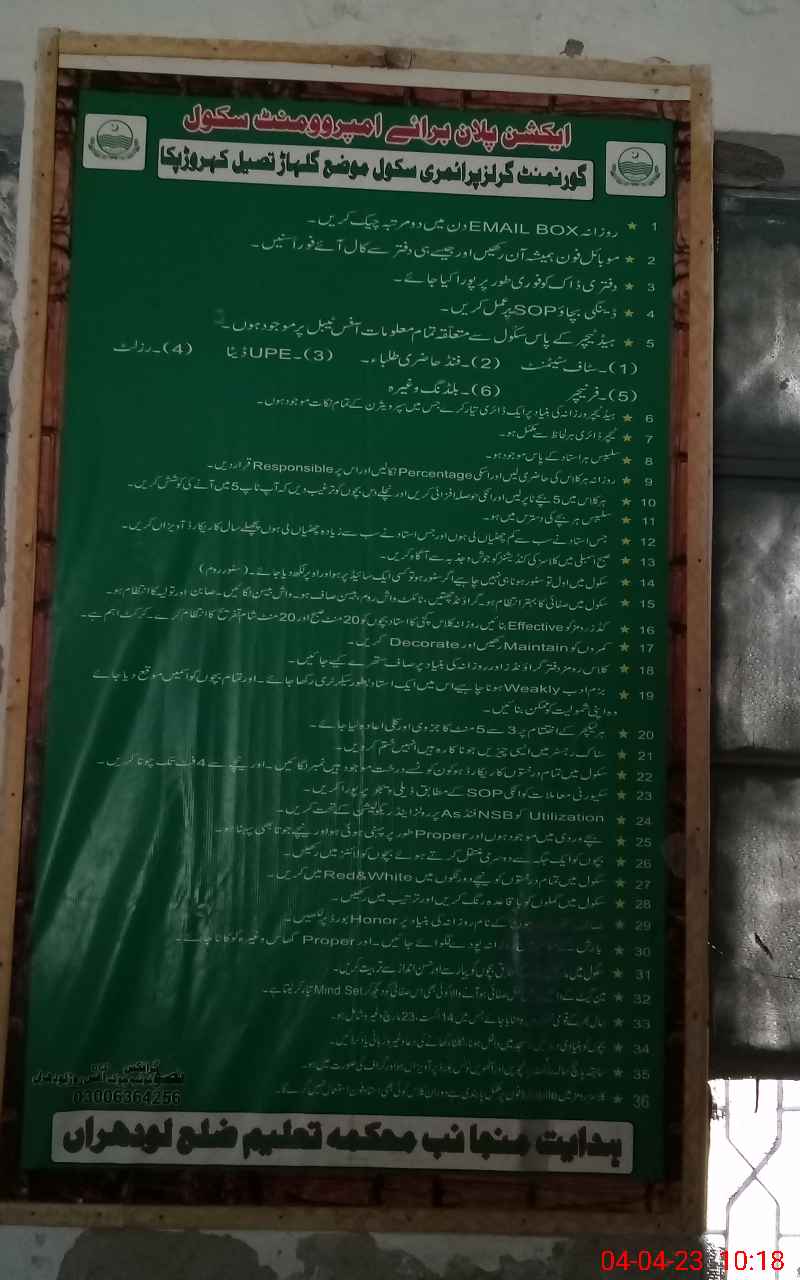 ایکشن پلان برائے امپروومنٹ سکول
گورنمنٹ گرلز پرائمری سکول موضع گلہاڑ تصیل کہروڑپکا
1 ★ روزانہ EMAIL BOX دن میں دو مرتبہ چیک کریں۔
2 ★ موبائل فون ہمیشہ آن رکھیں اور جیسے ہی دفتر سے کال آئے فوراً سنیں۔
3 ★ دفتری ڈاک کو فوری طور پر پورا کیا جائے۔
4 ★ ڈینگی بچاؤ SOP پر عمل کریں۔
5 ★ ہیڈ ٹیچر کے پاس سکول سے متعلقہ تمام معلومات آفس ٹیبل پر موجود ہوں۔
(1)۔ سٹاف سٹیٹمنٹ (2)۔ فنڈ حاضری طلباء۔ (3)۔ UPE ڈیٹا (4)۔ رزلٹ
(5)۔ فرنیچر (6)۔ بلڈنگ وغیرہ
6 ★ ہیڈ ٹیچر روزانہ کی بنیاد پر ایک ڈائری تیار کرے جس میں سپرویژن کے تمام نکات موجود ہوں۔
7 ★ ٹیچر ڈائری ہر لحاظ سے مکمل ہو۔
8 ★ سلیبس ہر استاد کے پاس موجود ہو۔
9 ★ روزانہ ہر کلاس کی حاضری لیں اور اسکی Percentage نکالیں اور اس پر Responsible قرار دیں۔
10 ★ ہر کلاس میں 5 بچے ٹاپر لیں اور انکی حوصلہ افزائی کریں اور نچلے دس بچوں کو ترغیب دیں کہ آپ ٹاپ 5 میں آنے کی کوشش کریں۔
11 ★ سلیبس ہر بچے کی دسترس میں ہو۔
12 ★ جس استاد نے سب سے کم چھٹیاں لی ہوں اور جس استاد نے سب سے زیادہ چھٹیاں لی ہوں پچھلے سال کا ریکارڈ آویزاں کریں۔
13 ★ صبح اسمبلی میں کلاسز کی کنڈیشنز کو جوش و جذبہ سے آگاہ کریں۔
14 ★ سکول میں اول تو سٹور ہونا ہی نہیں چاہیے اگر سٹور ہو تو کسی ایک سائیڈ پر ہو اور اوپر لکھ دیا جائے۔ (سٹور روم)
15 ★ سکول میں صفائی کا بہتر انتظام ہو۔ گراؤنڈ، چھتیں، ٹائلٹ واش روم، بیسن صاف ہو۔ واش بیسن لگائیں۔ صابن اور تولیہ کا انتظام ہو۔
16 ★ کڈز رومز کو Effective بنائیں روزانہ کلاس کچی کا استاد بچوں کو 20 منٹ صبح اور 20 منٹ شام تفریح کا انتظام کرے۔ کیونکہ اہم ہے۔
17 ★ کمروں کو Maintain رکھیں اور Decorate کریں۔
18 ★ کلاس رومز دفتر گراؤنڈز اور روزانہ کی بنیاد پر صاف ستھرے کیے جائیں۔
19 ★ بزم ادب Weakly ہونا چاہیے اس میں ایک استاد بطور سیکرٹری رکھا جائے۔ اور تمام بچوں کو اسمیں موقع دیا جائے
وہ اپنی شمولیت کو ممکن بنائیں۔
20 ★ ہر لیکچر کے اختتام پر 3 سے 5 منٹ کا جزوی اور کلی اعادہ لیا جائے۔
21 ★ سٹاک رجسٹر میں ایسی چیزیں ہونا کارہ ہیں انہیں ختم کر دیں۔
22 ★ سکول میں تمام درختوں کا ریکارڈ ہو کون کونسے درخت موجود ہیں نمبر لگائیں۔ اور نیچے سے 4 فٹ تک چونا کریں۔
23 ★ سکیورٹی معاملات کو انکی SOP کے مطابق ڈیلی پورا کریں۔
24 ★ Utilization کو NSB فنڈ As پر رولز اینڈ ریگولیشن کے تحت کریں۔
25 ★ بچے وردی میں موجود ہوں اور Proper طور پر پہنی ہوئی ہو اور نیچے جوتا بھی پہنا ہو۔
26 ★ بچوں کو ایک جگہ سے دوسری منتقل کرتے ہوئے بچوں کو لائنز میں رکھیں۔
27 ★ سکول میں تمام درختوں کو نیچے دو رنگوں میں Red&White میں کریں۔
28 ★ سکول میں گملوں کو باقاعدہ رنگ کریں اور ترتیب میں رکھیں۔
29 ★ کے نام روزانہ کی بنیاد پر Honor بورڈ پر لکھیں۔
30 ★ بارش پودے لگوائے جائیں۔ اور Proper گھاس وغیرہ کو کاٹا جائے۔
31 ★ سکول میں بچوں کو پیار سے اور احسن انداز سے تربیت کریں۔
32 ★ مین گیٹ کے صفائی ہو آنے والا کوئی بھی اس صفائی کو دیکھ کر Mind Set تیار کر لیتا ہے۔
33 ★ منایا جائے جس میں 14 اگست، 23 مارچ وغیرہ شامل ہو۔
34 ★ بچوں کو بنیادی مسجد میں داخل ہونا، نکلنا، کھانے کی دعا وغیرہ زبانی یاد کرائیں۔
35 ★ نوٹس بورڈ پر آویزاں ہو اور گراف کی صورت میں ہو۔
36 ★ کلاس رومز میں فون پر مکمل پابندی ہے دوران کلاس کوئی بھی استاد فون استعمال نہیں کرے گا۔
03006364256
ہدایت منجانب محکمہ تعلیم ضلع لودھراں
04-04-23 10:18